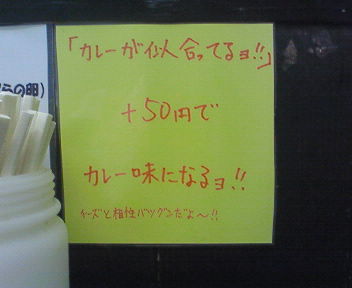 「カレーが似合ってるョ!!」
+50円で
カレー味になるョ!!
チーズと相性バツグンだよ〜!!
の卵)